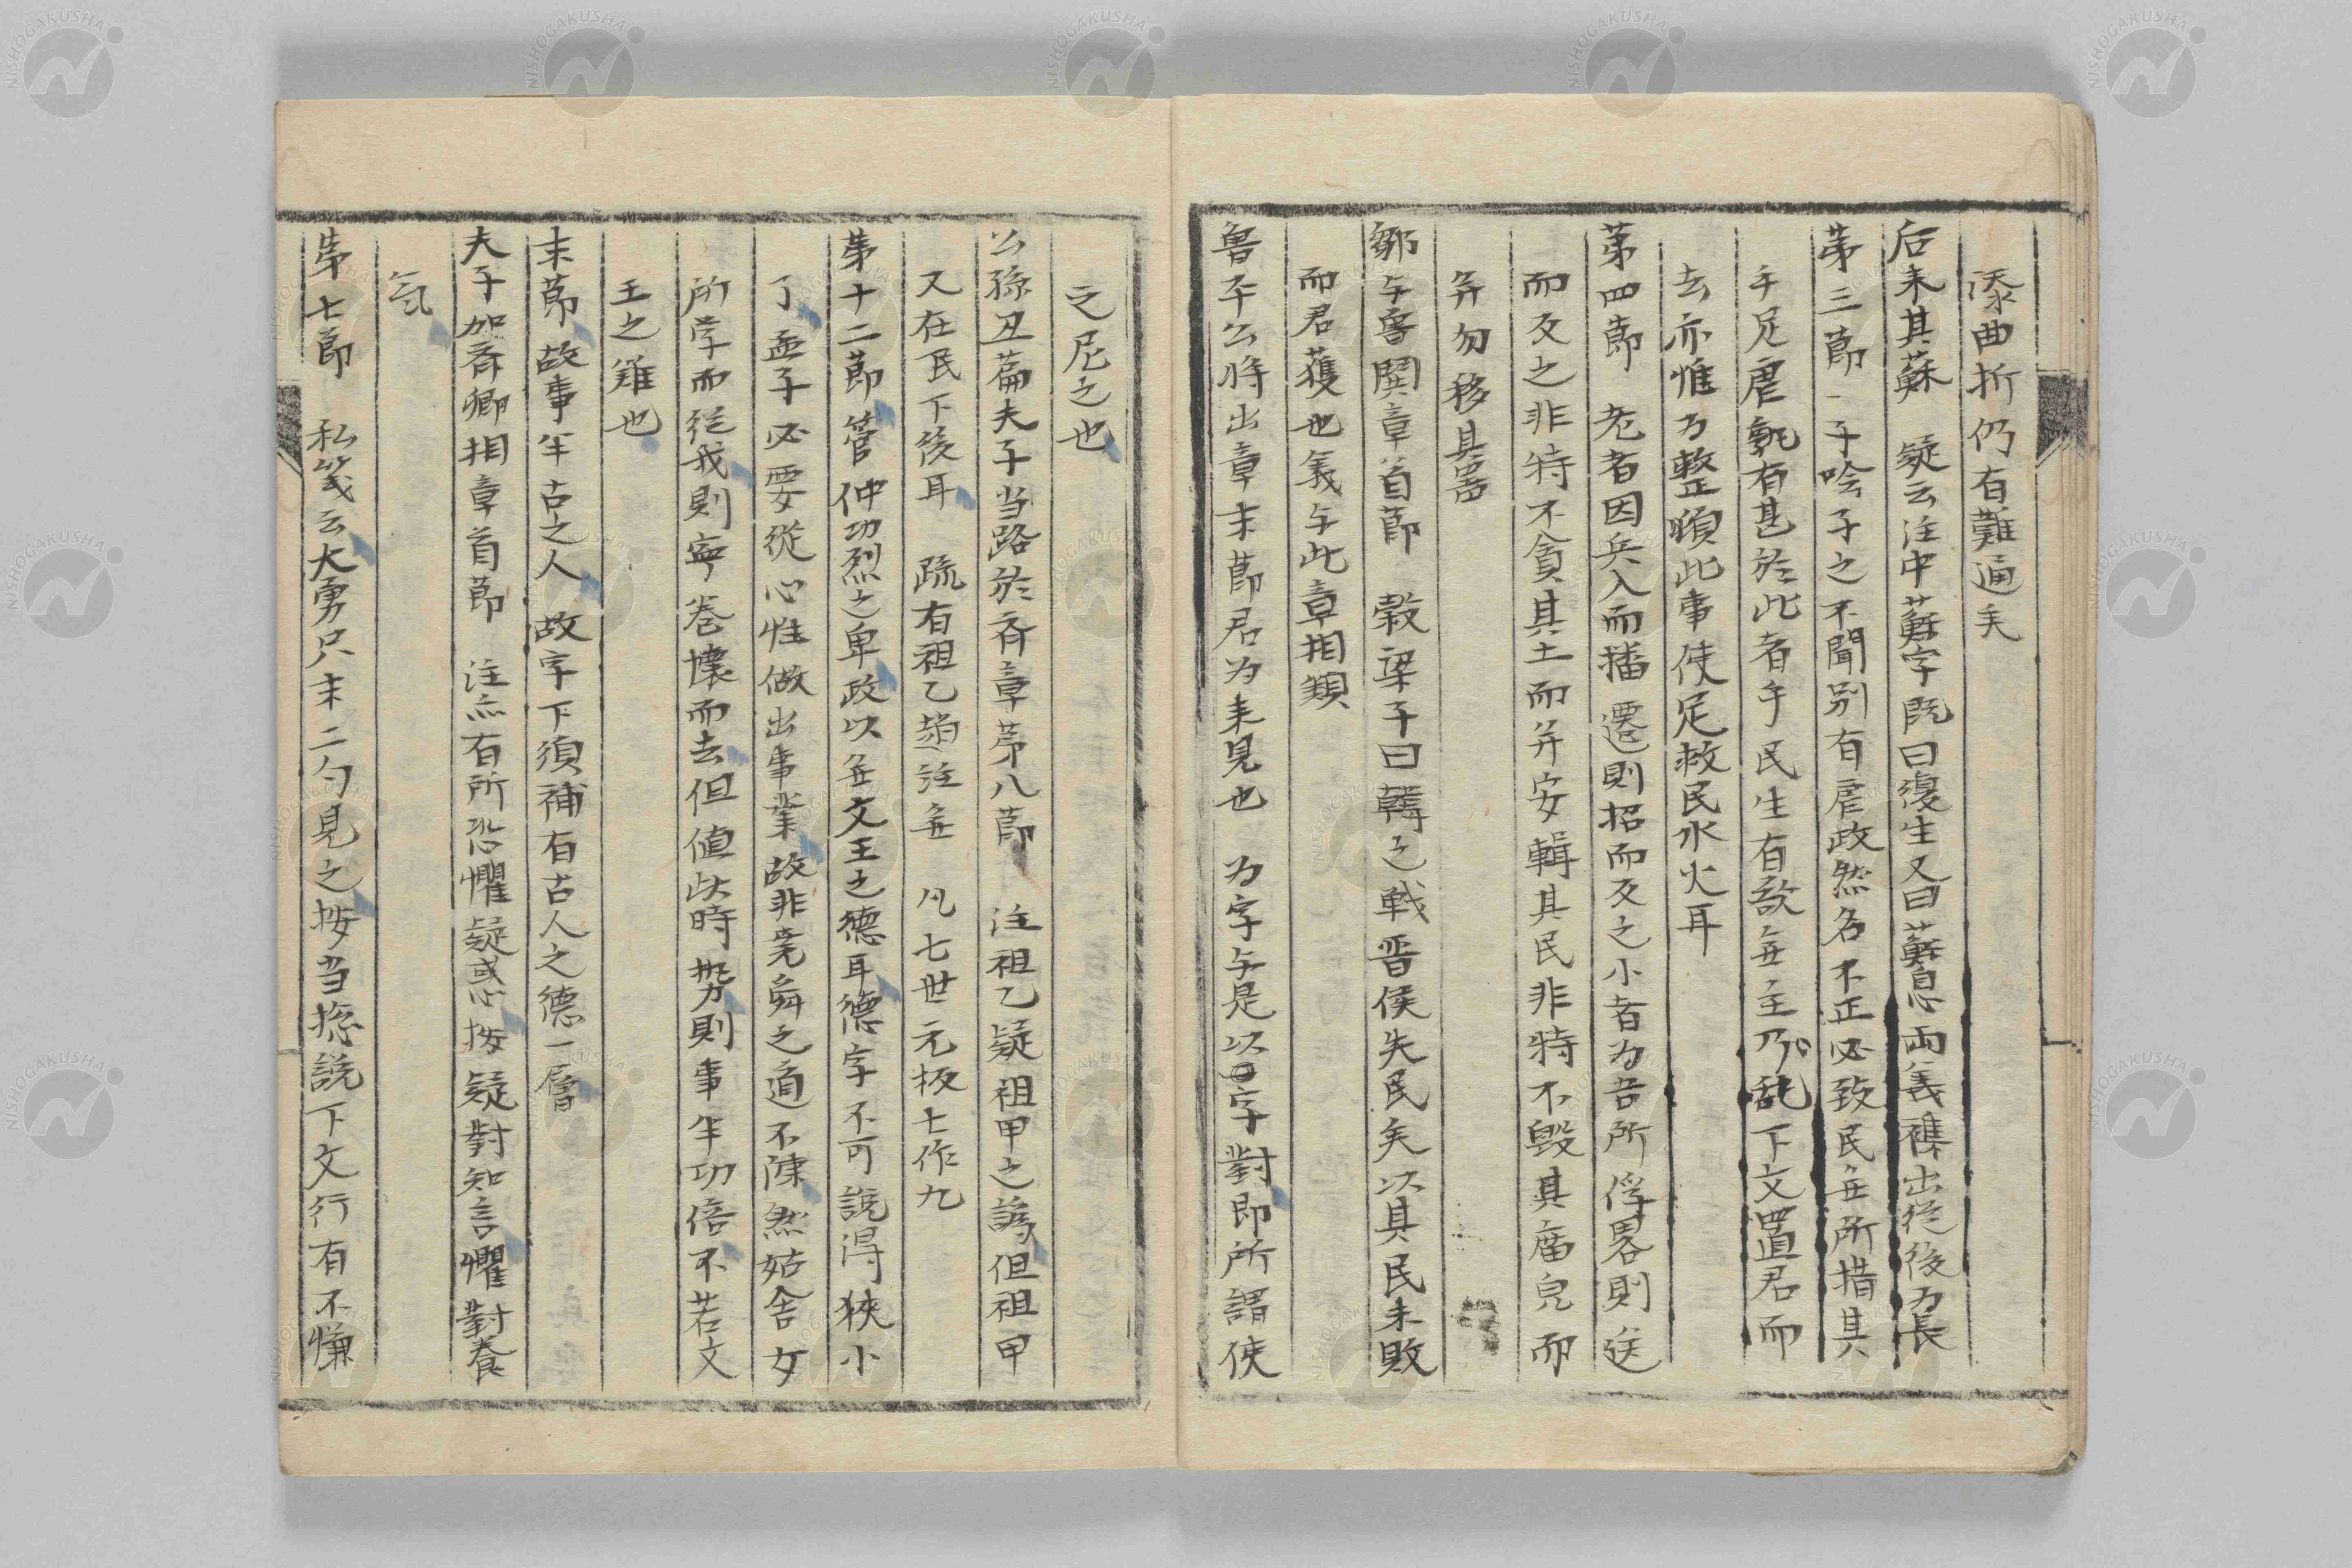 添曲折仍有難通矣
后来其蘇　疑云注中蘇字既曰復生又曰蘇息両義襍出従後为長
第三節　一子唫子之不聞別有虐政然名不正必致民無所措其
手足虐孰有甚於此者乎民生有欲無主乃乱下文置君而
去亦惟为整頓此事使足救民水火耳
第四節　老者因兵入而播遷則招而反之小者为吾所俘畧則送
而反之非特不貪其土而并安輯其民非特不毀其廟皃而
并勿移其器
鄒与魯鬨章首節　穀梁子曰韓之戦晋侯失民矣以其民未敗
而君獲也義与此章相類
魯平公将出章末節君为来見也　为字与是以字對即所謂使
之尼之也
公孫丑篇夫子当路於斉章第八節　注祖乙疑祖甲之譌但祖甲
又在民下後耳　疏有祖乙趙注無　凡七世元板七作九
第十二節管仲功烈之卑政以無文王之德耳德字不可說得狹小
了孟子必要從心性做出事業故非堯舜之道不陳然姑舎女
所学而從我則寧巻懐而去但値此時勢則事半功倍不若文
王之難也
末節故事半古之人　故字下須補有古人之德一層
夫子加斉卿相章首節　注亦有所恐懼疑惑按疑對知言懼對養
気
第七節　私箋云大勇只末二句見之按当揔說下文行有不慊